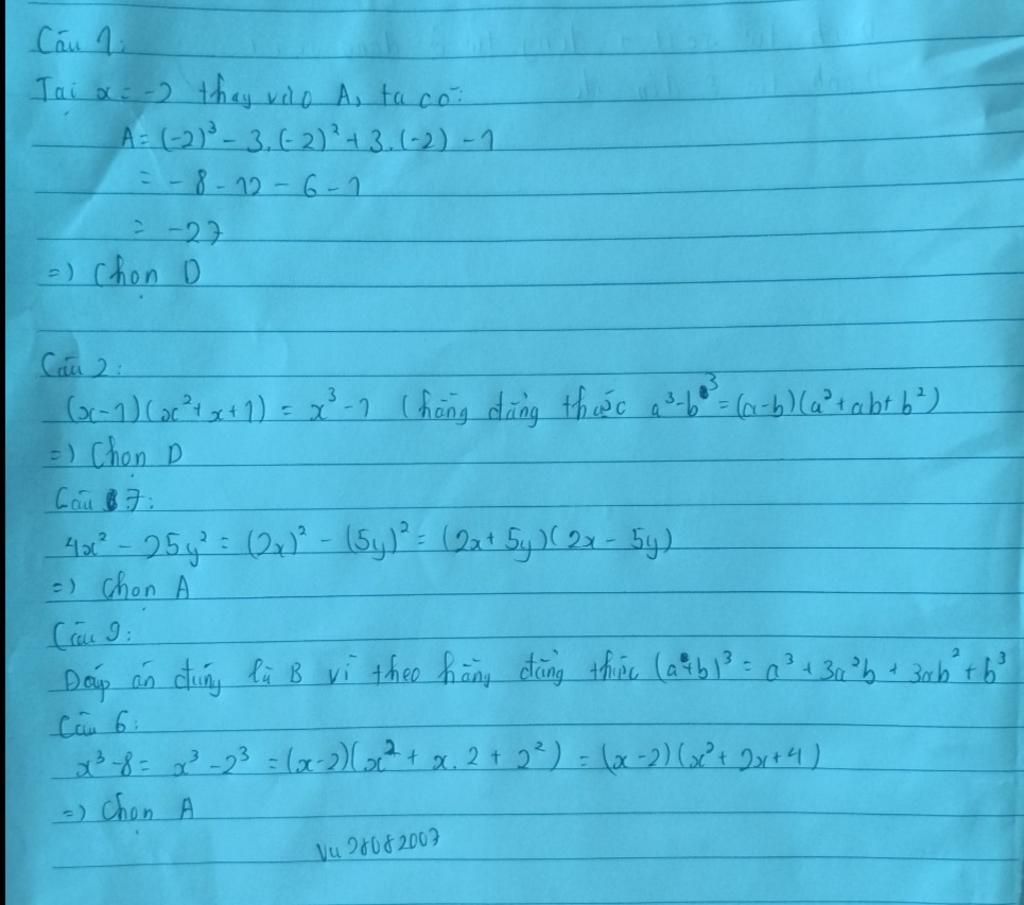 Câu 1:
Tại x = -2 thay vào A, ta có:
A = (-2)³ - 3.(-2)² + 3.(-2) - 1
= -8 - 12 - 6 - 1
= -27
=) Chọn D
Câu 2:
(x-1)(x²+x+1) = x³-1 (hằng đẳng thức a³-b³=(a-b)(a²+ab+b²)
=) Chọn D
Câu 7:
4x² - 25y² = (2x)² - (5y)² = (2x+5y)(2x-5y)
=) Chọn A
Câu 9:
Đáp án đúng là B vì theo hằng đẳng thức (a+b)³ = a³+3a²b+3ab²+b³
Câu 6:
x³-8 = x³-2³ = (x-2)(x²+x.2+2²) = (x-2)(x²+2x+4)
=) Chọn A
Vu28082007